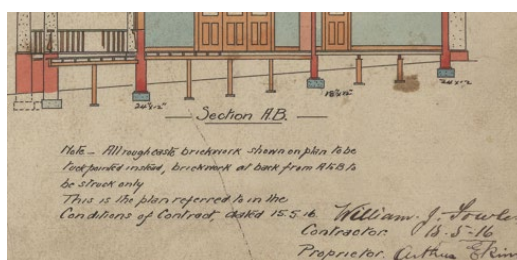 24"x12"
18"x12"
24"x12"
Section A.B.
Note – All roughcasts brickwork shown on plan to be
tuck pointed instead, brickwork at back from A to B to
be struck only
This is the plan referred to in the
Conditions of Contract, dated 15.5.16
William. J. Fowler
Contractor. 15.5-16
Proprietor. Arthur Ekin